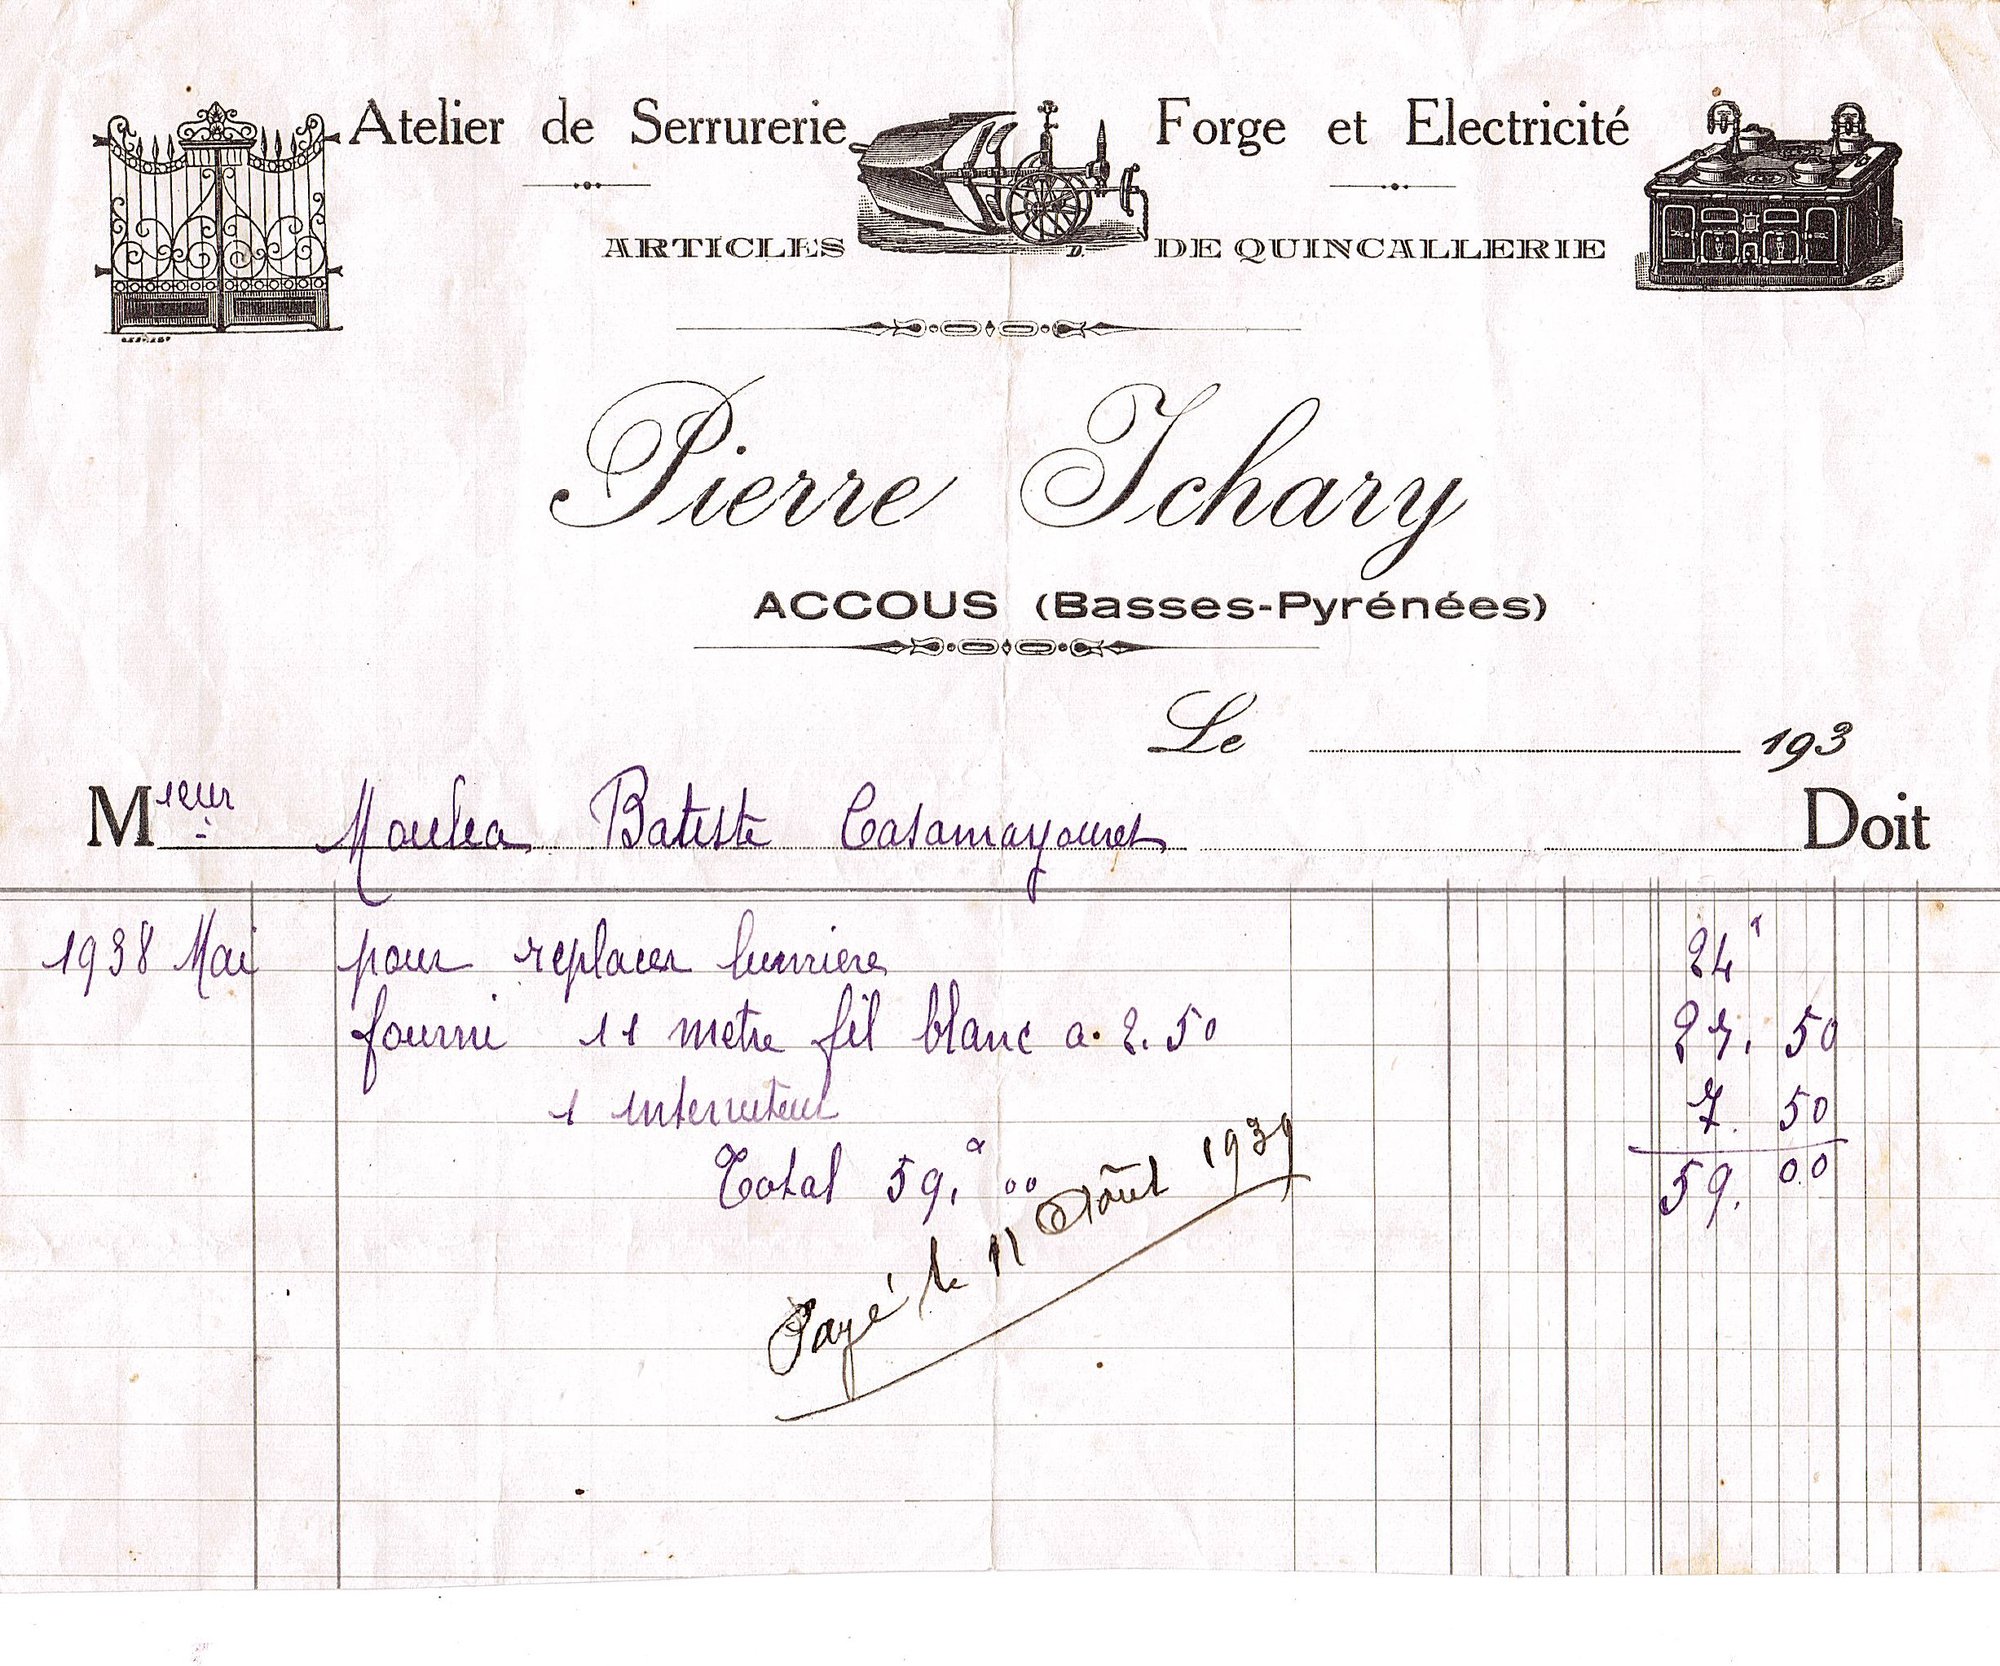 Atelier de Serrurerie Forge et Electricité
ARTICLES DE QUINCALLERIE
Pierre Ichary
ACCOUS (Basses-Pyrénées)
Le 193
Mieur Maulea Batiste Casamayouret Doit
1938 Mai pour replacer lumiere 24f
fourni 11 metre fil blanc a 2.50 27. 50
1 interruteur 7. 50
Total 59. 00 59. 00
Payé le 11 Août 1939